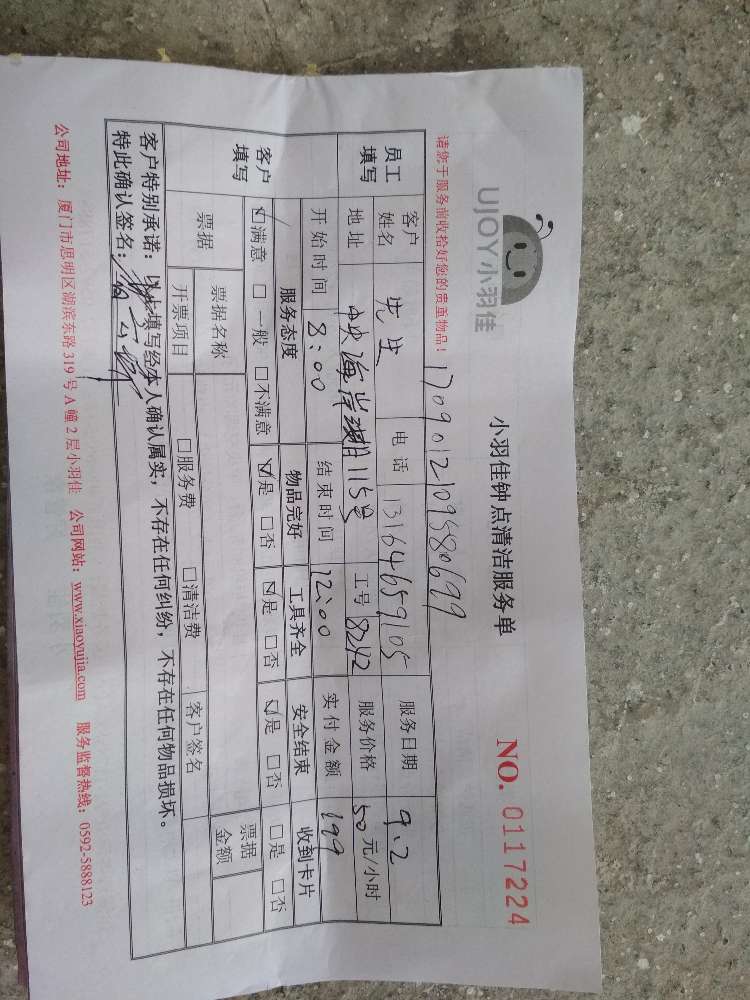 UJOY小羽佳
小羽佳钟点清洁服务单
NO. 0117224
请您于服务前收拾好您的贵重物品!
1709012109580699
员工填写 客户姓名 先生 电话 13164659105 服务日期 9.2
地址 中央海岸 115号 工号 8242 服务价格 50元/小时
开始时间 8:00 结束时间 12:00 实付金额 199
客户填写 服务态度 物品完好 工具齐全 安全结束 收到卡片
☑满意 □一般 □不满意 ☑是 □否 ☑是 □否 ☑是 □否 □是 □否
票据 票据名称 票据金额
开票项目 □服务费 □清洁费 客户签名
客户特别承诺:以上填写经本人确认属实,不存在任何纠纷,不存在任何物品损坏。
特此确认签名:
公司地址:厦门市思明区湖滨东路319号A幢2层小羽佳 公司网站:www.xiaoyujia.com 服务监督热线:0592-5888123